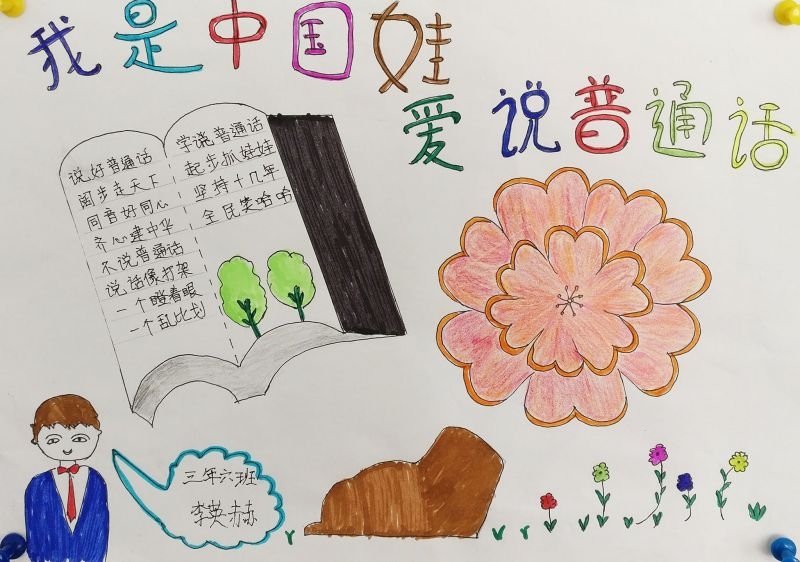 我是中国娃
爱说普通话
说好普通话
阔步走天下
同音好同心
齐心建中华
不说普通话
说话像打架
一个瞪着眼
一个乱比划
学说普通话
起步抓娃娃
坚持十几年
全民笑哈哈
三年六班
李英赫